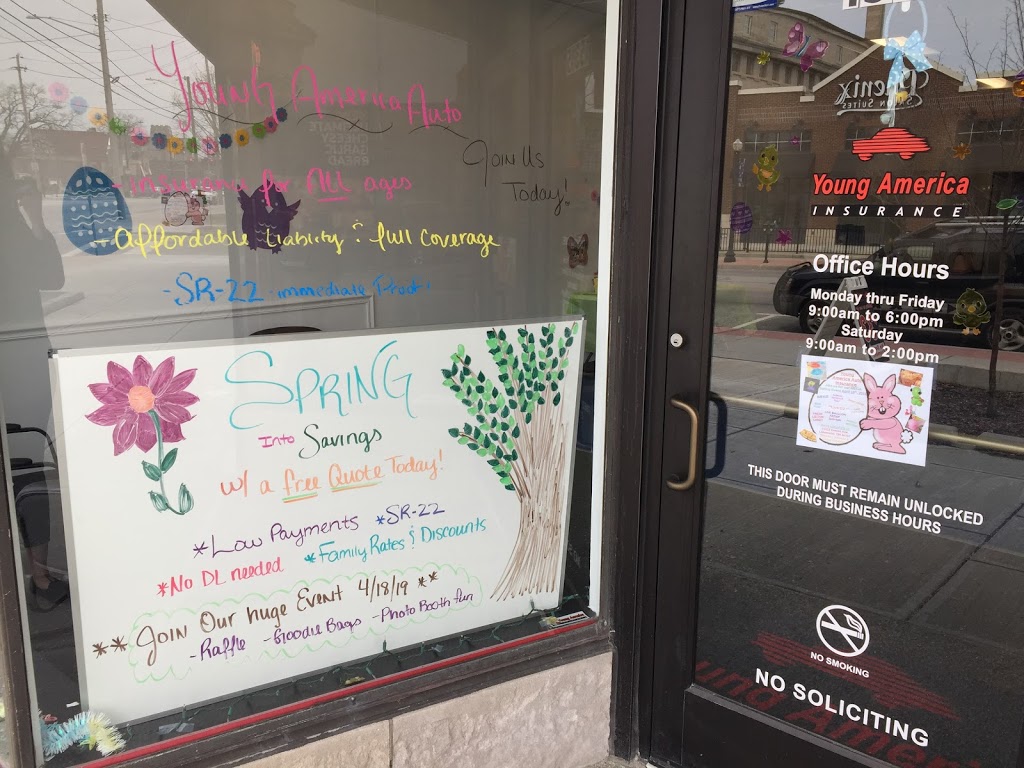 Young America Auto
Join Us
Today!
-insurance for ALL ages
- affordable liability & full coverage
-SR-22 immediate
SPRING
Into Savings
w/ a free Quote Today!
*Low Payments *SR-22
*No DL needed *Family Rates & Discounts
** Join Our huge Event 4/18/19 **
-Raffle -Goodie Bags -Photo Booth fun
Phenix
SALON SUITES
Young America
INSURANCE
Office Hours
Monday thru Friday
9:00am to 6:00pm
Saturday
9:00am to 2:00pm
THIS DOOR MUST REMAIN UNLOCKED
DURING BUSINESS HOURS
NO SMOKING
NO SOLICITING